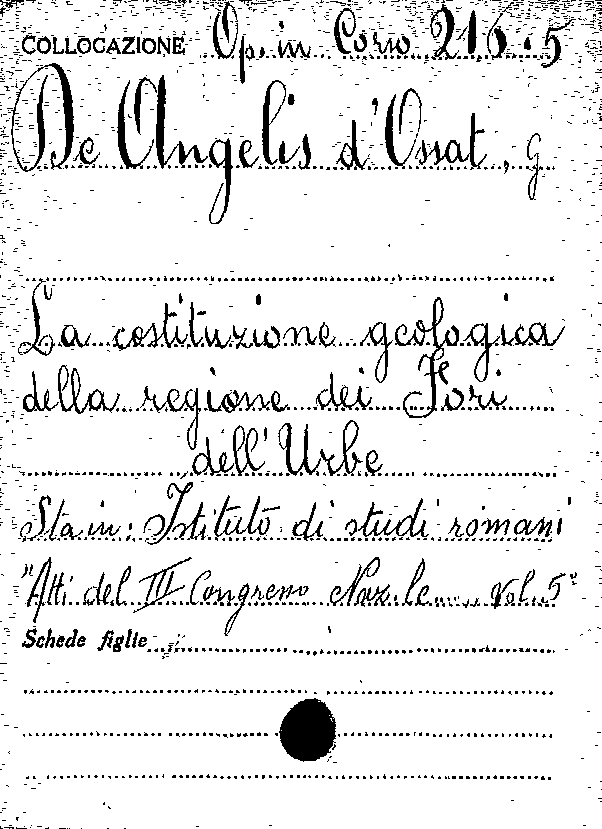 COLLOCAZIONE Op. in Corso 216.5
De Angelis d'Ossat, G
La costituzione geologica
della regione dei Fori
dell'Urbe
Sta in: Istituto di studi romani
"Atti del III Congresso Naz.le..... Vol. 5°
Schede figlie